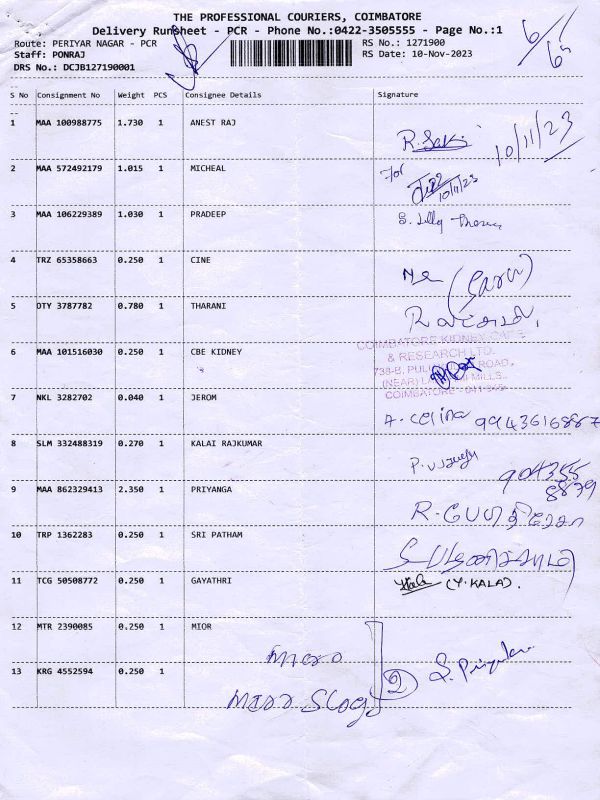 THE PROFESSIONAL COURIERS, COIMBATORE
Delivery Runsheet - PCR - Phone No.:0422-3505555 - Page No.:1
Route: PERIYAR NAGAR - PCR RS No.: 1271900
Staff: PONRAJ RS Date: 10-Nov-2023
DRS No.: DCJB127190001
S No Consignment No Weight PCS Consignee Details Signature
1 MAA 100988775 1.730 1 ANEST RAJ 10/11/23
2 MAA 572492179 1.015 1 MICHEAL For 10/11/23
3 MAA 106229389 1.030 1 PRADEEP S. Lilly
4 TRZ 65358663 0.250 1 CINE
5 DTY 3787782 0.780 1 THARANI
COIMBATORE KIDNEY
6 MAA 101516030 0.250 1 CBE KIDNEY & RESEARCH LTD.
738-B, ROAD,
(NEAR) MILLS.
7 NKL 3282702 0.040 1 JEROM COIMBATORE
A. Celina 9943616887
8 SLM 332488319 0.270 1 KALAI RAJKUMAR
904355
9 MAA 862329413 2.350 1 PRIYANGA 8879
10 TRP 1362283 0.250 1 SRI PATHAM
11 TCG 50508772 0.250 1 GAYATHRI (Y. KALA).
12 MTR 2390085 0.250 1 MIOR
Micro
13 KRG 4552594 0.250 1 2